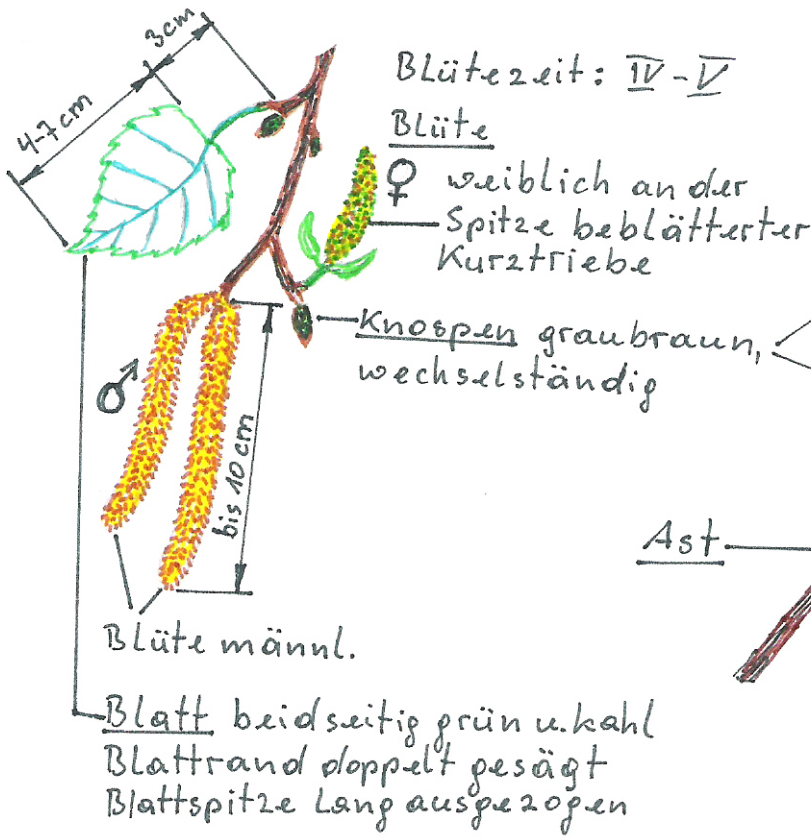 3cm
4-7cm
Blütezeit: IV-V
Blüte
♀ weiblich an der
Spitze beblätterter
Kurztriebe
Knospen graubraun,
wechselständig
♂
bis 10cm
Ast
Blüte männl.
Blatt beidseitig grün u. kahl
Blattrand doppelt gesägt
Blattspitze Lang ausgezogen